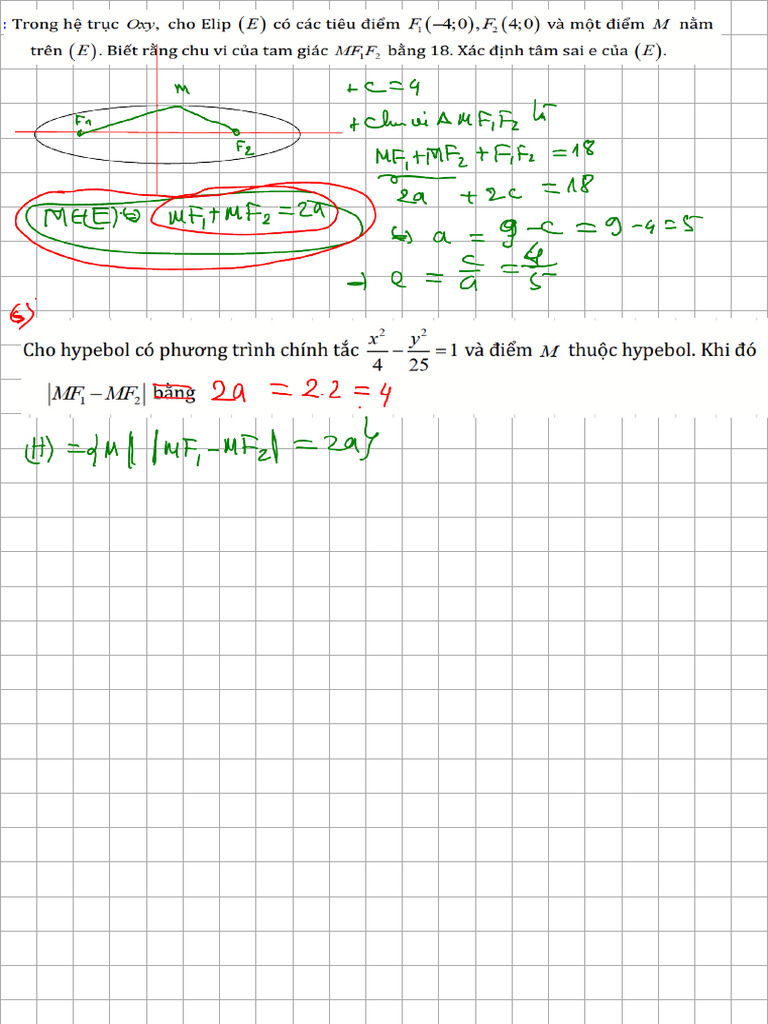 : Trong hệ trục Oxy, cho Elip (E) có các tiêu điểm F₁(−4;0), F₂(4;0) và một điểm M nằm
trên (E). Biết rằng chu vi của tam giác MF₁F₂ bằng 18. Xác định tâm sai e của (E).
M
F₁
F₂
M∈(E) ⇔ MF₁ + MF₂ = 2a
+ c = 4
+ Chu vi Δ MF₁F₂ là
MF₁ + MF₂ + F₁F₂ = 18
2a + 2c = 18
⇔ a = 9 − c = 9 − 4 = 5
→ e = c/a = 4/5
5)
Cho hypebol có phương trình chính tắc x²/4 − y²/25 = 1 và điểm M thuộc hypebol. Khi đó
|MF₁ − MF₂| bằng 2a = 2.2 = 4
(H) = {M | |MF₁ − MF₂| = 2a}